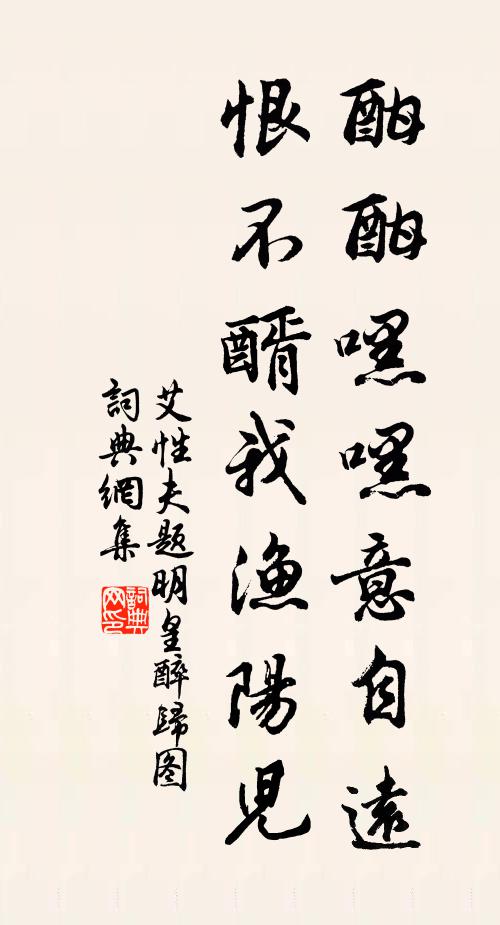 酣酣嘿嘿意自遠
恨不醑我漁陽兒
艾性夫題明皇醉歸图
詞典網集
詞典
网印